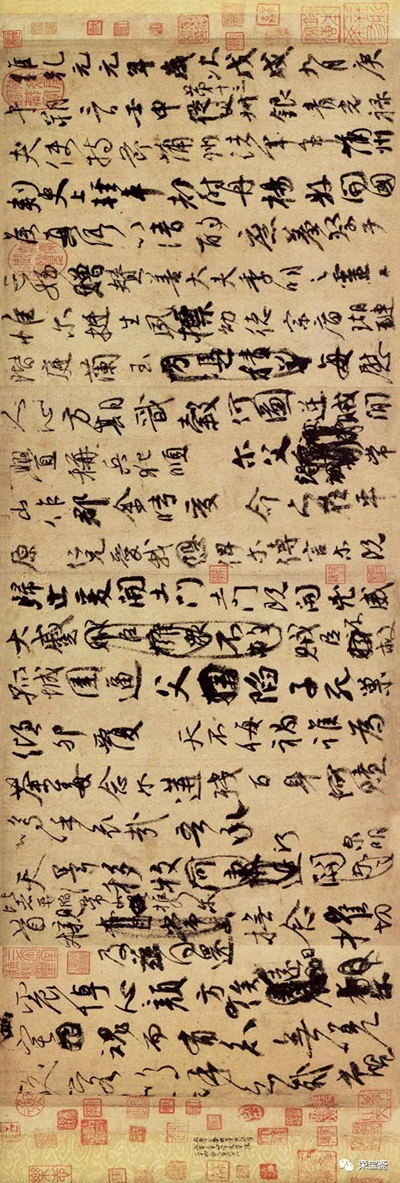 維乾元元年歲上戊戌九月庚
午朔三日壬申第十三叔銀青光祿
夫使持節蒲州諸軍事蒲州
刺史上輕車都尉丹楊縣開國
侯真卿以清酌庶羞祭于
亡姪贈贊善大夫季明之靈曰
惟爾挺生夙標幼德宗廟瑚璉
階庭蘭玉方憑積善每慰
人心方期戩穀何圖逆賊閒
釁稱兵犯順爾父竭誠常
山作郡余時受命亦在平
原仁兄愛我俾爾傳言爾既
歸止爰開土門土門既開凶威
大蹙賊臣擁眾不救賊臣不救
孤城圍逼父陷子死巢
傾卵覆天不悔禍誰為
荼毒念爾遘殘百身何贖
嗚呼哀哉吾承
天澤移牧河關泉明
比者再陷常山攜爾
首櫬及茲同還撫念摧切
震悼心顏方俟遠日
卜爾幽宅魂而有知無嗟
久客嗚呼哀哉尚饗
荣宝斋